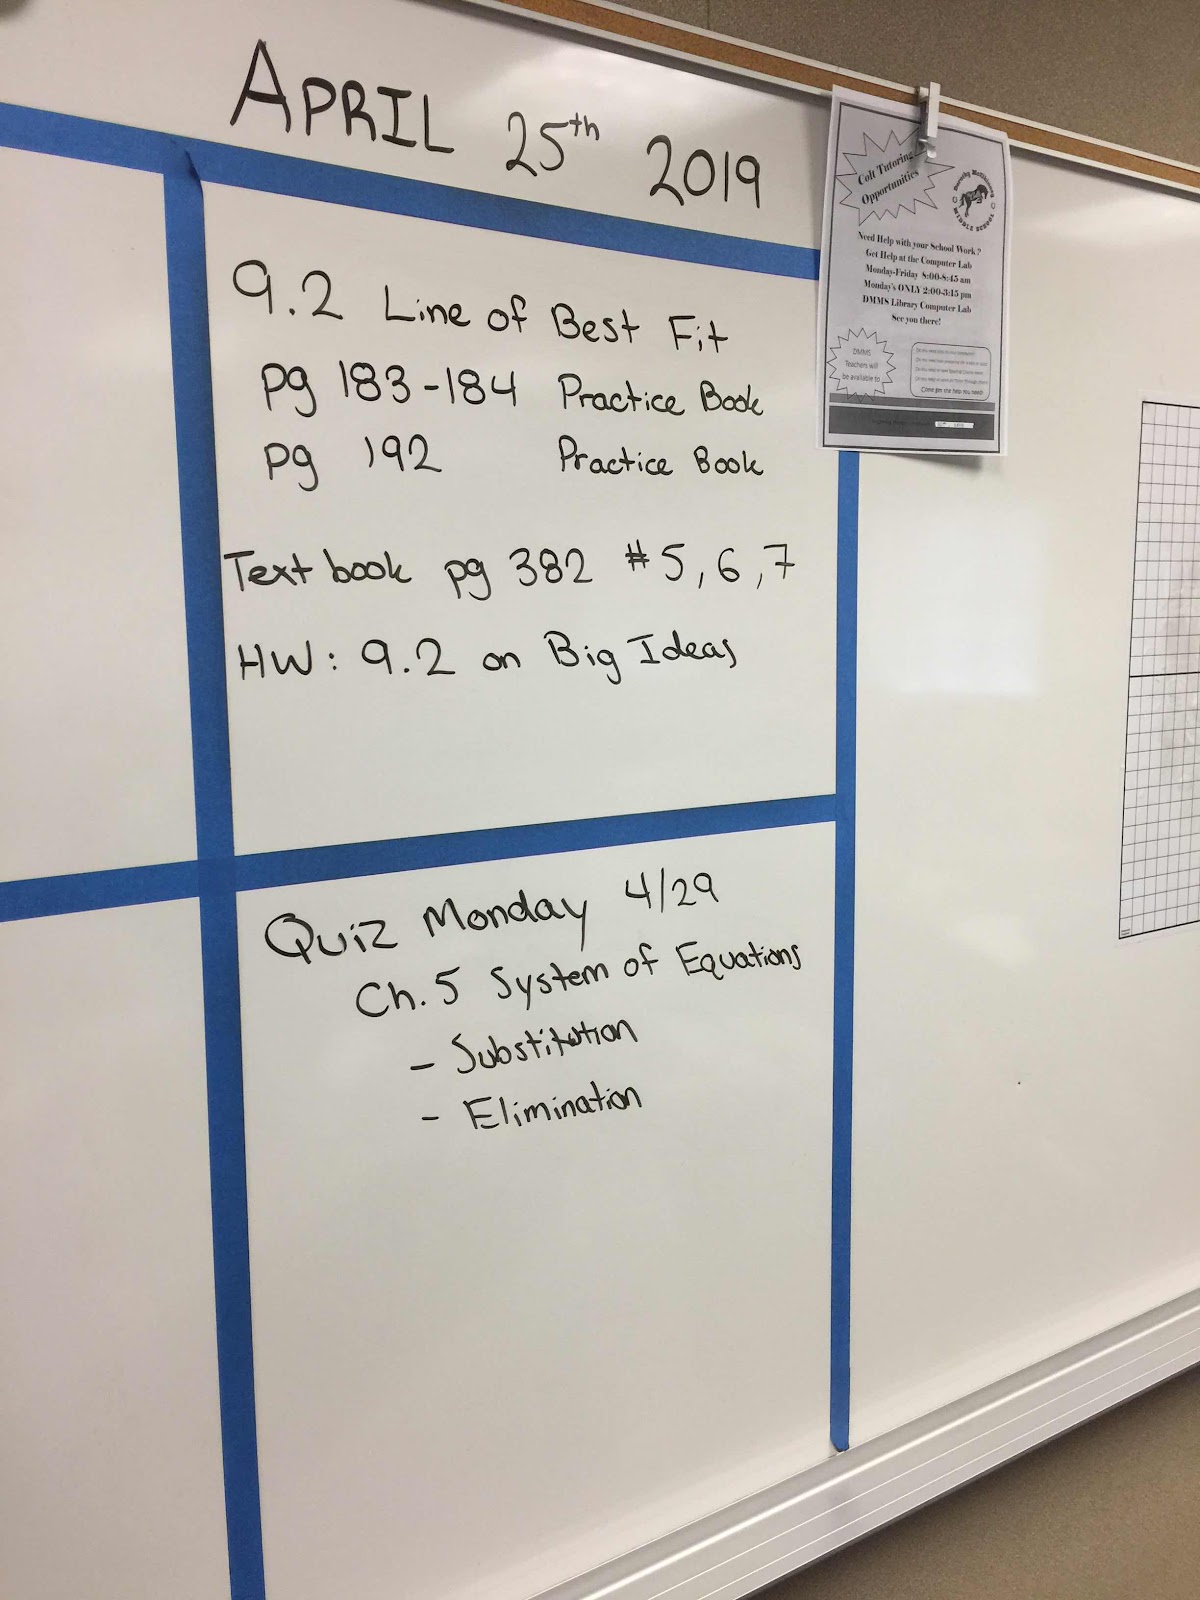 APRIL 25th 2019
9.2 Line of Best Fit
pg 183-184 Practice Book
pg 192 Practice Book
Textbook pg 382 #5, 6, 7
HW: 9.2 on Big Ideas
Quiz Monday 4/29
Ch. 5 System of Equations
- Substitution
- Elimination
Colt Tutoring
Opportunities
MIDDLE SCHOOL
Need Help with your School Work?
Get Help at the Computer Lab
Monday-Friday 8:00-8:45 am
Monday's ONLY 2:00-3:15 pm
DMMS Library Computer Lab
See you there!
DMMS
Teachers will
be available to